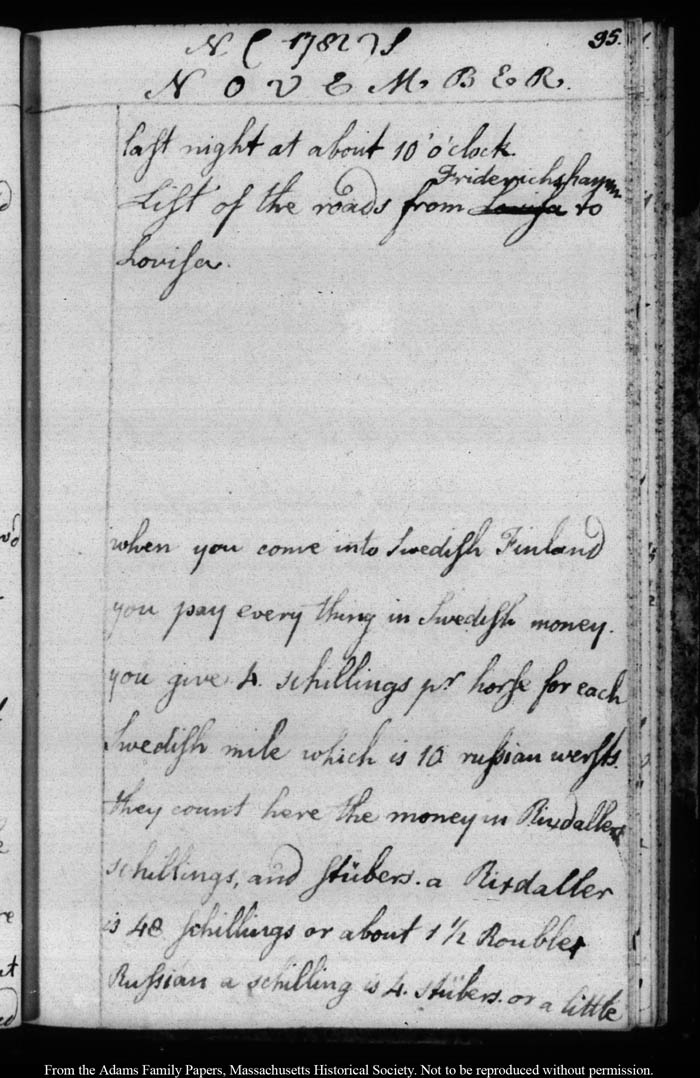 95.
1782
NOVEMBER.
last night at about 10 o'clock.
Friderichshamm
List of the roads from Lovisa to
Lovisa.
when you come into Swedish Finland
you pay every thing in Swedish money.
you give 4. schillings pr horse for each
Swedish mile which is 10 russian wersts.
they count here the money in Rixdallers
schillings, and stübers. a Rixdaller
is 48 schillings or about 1 1/2 Roubles
Russian a schilling is 4. stübers. or a little
From the Adams Family Papers, Massachusetts Historical Society. Not to be reproduced without permission.